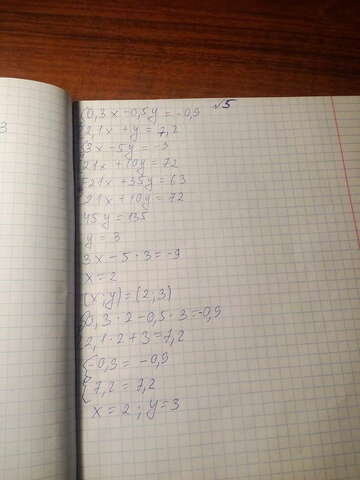 √5
{0,3x - 0,5y = -0,9
{2,1x + y = 7,2
{3x - 5y = -9
{21x + 10y = 72
{-21x + 35y = 63
{21x + 10y = 72
45y = 135
y = 3
3x - 5 · 3 = -9
x = 2
(x; y) = (2, 3)
{0,3 · 2 - 0,5 · 3 = -0,9
{2,1 · 2 + 3 = 7,2
{-0,9 = -0,9
{7,2 = 7,2
x = 2 ; y = 3